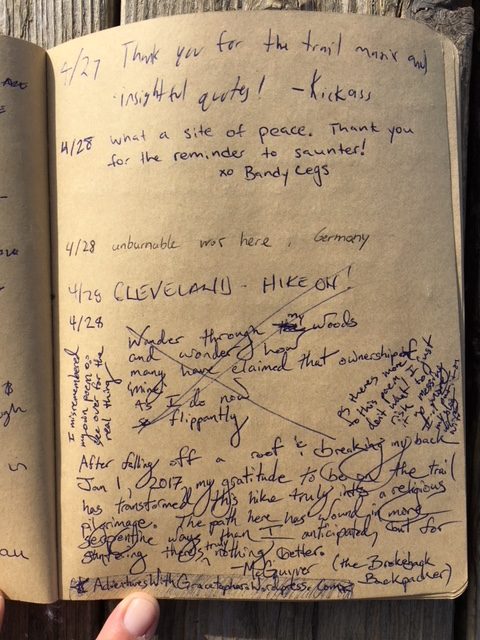 4/27 Thank you for the trail magic and
insightful quotes! -Kickass
4/28 what a site of peace. Thank you
for the reminder to saunter!
xo Bandy Legs
4/28 unburnable was here, Germany
4/28 CLEVELAND - HIKE ON!
4/28
Wander through my woods
and wonder how
many have claimed that ownership of
"mine"
As I do now
flippantly
I misremembered
my own poem so
do over for the
real thing
Ps there's more
to this poem
but I
After falling off a roof & breaking my back
Jan 1, 2017, my gratitude to be on the trail
has transformed this hike truly into a religious
pilgrimage. The path here has wound in more
serpentine ways than I anticipated, but for
sauntering there's truly nothing better.
-McGuyver (the Brokeback
Backpacker)